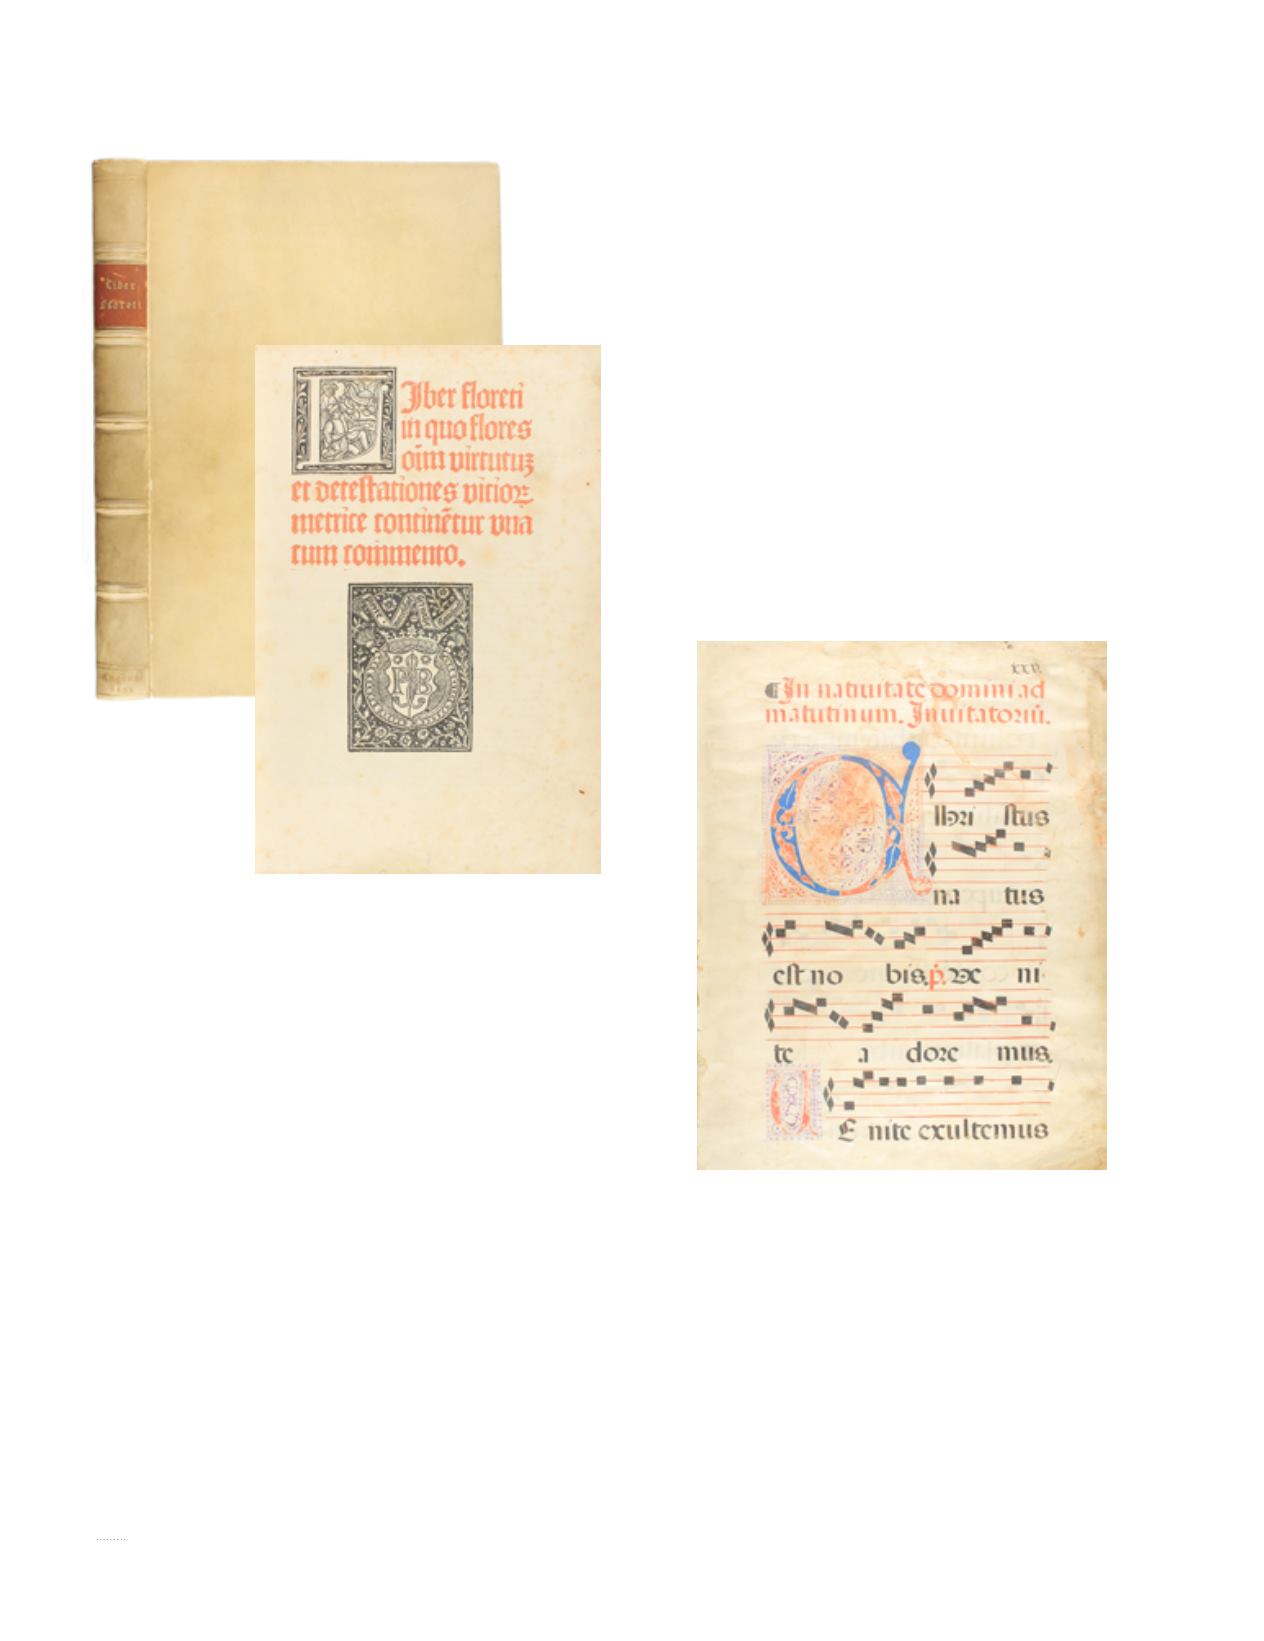 Liber
Floreti
LIber floreti
in quo flores
oīm virtutuꝫ
et detestationes vitioꝝ
metrice continētur vna
cum commento.
P B
xxv.
¶ In natiuitate domini ad
matutinum. Inuitatoriū.
stus
na tus
est no bis. p̄. Ve ni
te a dore mus.
V E nite exultemus